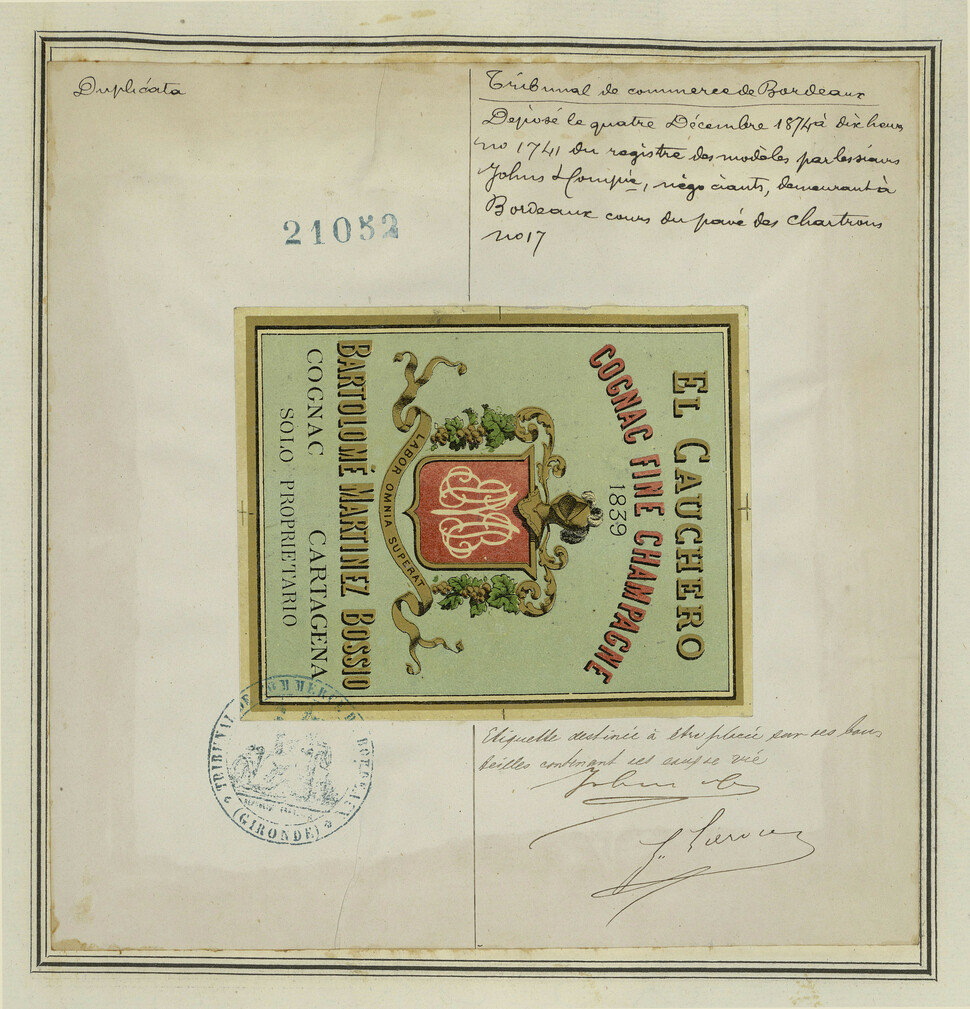 Duplicata
Tribunal de commerce de Bordeaux
Déposé le quatre Décembre 1874 à dix heures
no 1741 du registre des modèles par les sieurs
Johns & Compie, négociants, demeurant à
Bordeaux cours du pavé des Chartrons
no 17
21052
EL CAUCHERO
COGNAC FINE CHAMPAGNE
1839
LABOR OMNIA SUPERAT
BARTOLOMÉ MARTINEZ BOSSIO
COGNAC CARTAGENA
SOLO PROPRIETARIO
TRIBUNAL DE COMMERCE DE BORDEAUX
(GIRONDE)
Etiquette destinée à être placée sur ses bou
teilles contenant ses eaux de vie